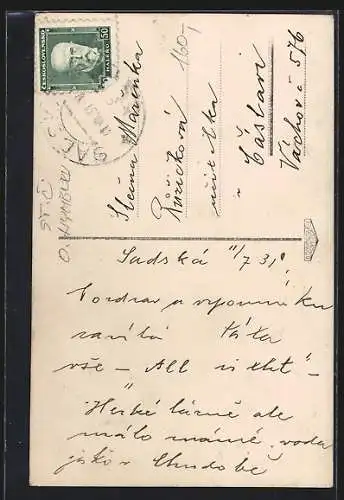 ČESKOSLOVENSKO
50
HALÉŘŮ
SADSKÁ
160,-
Slečna Mařenka
Růžičková
učitelka
v Čáslavi
Váchova č 576
Sadská 11/7 31.
Pozdrav a vzpomínku
zasílá Káťa
vše - All
Hezké lázně ale
málo známé, voda
jako v Chudobě